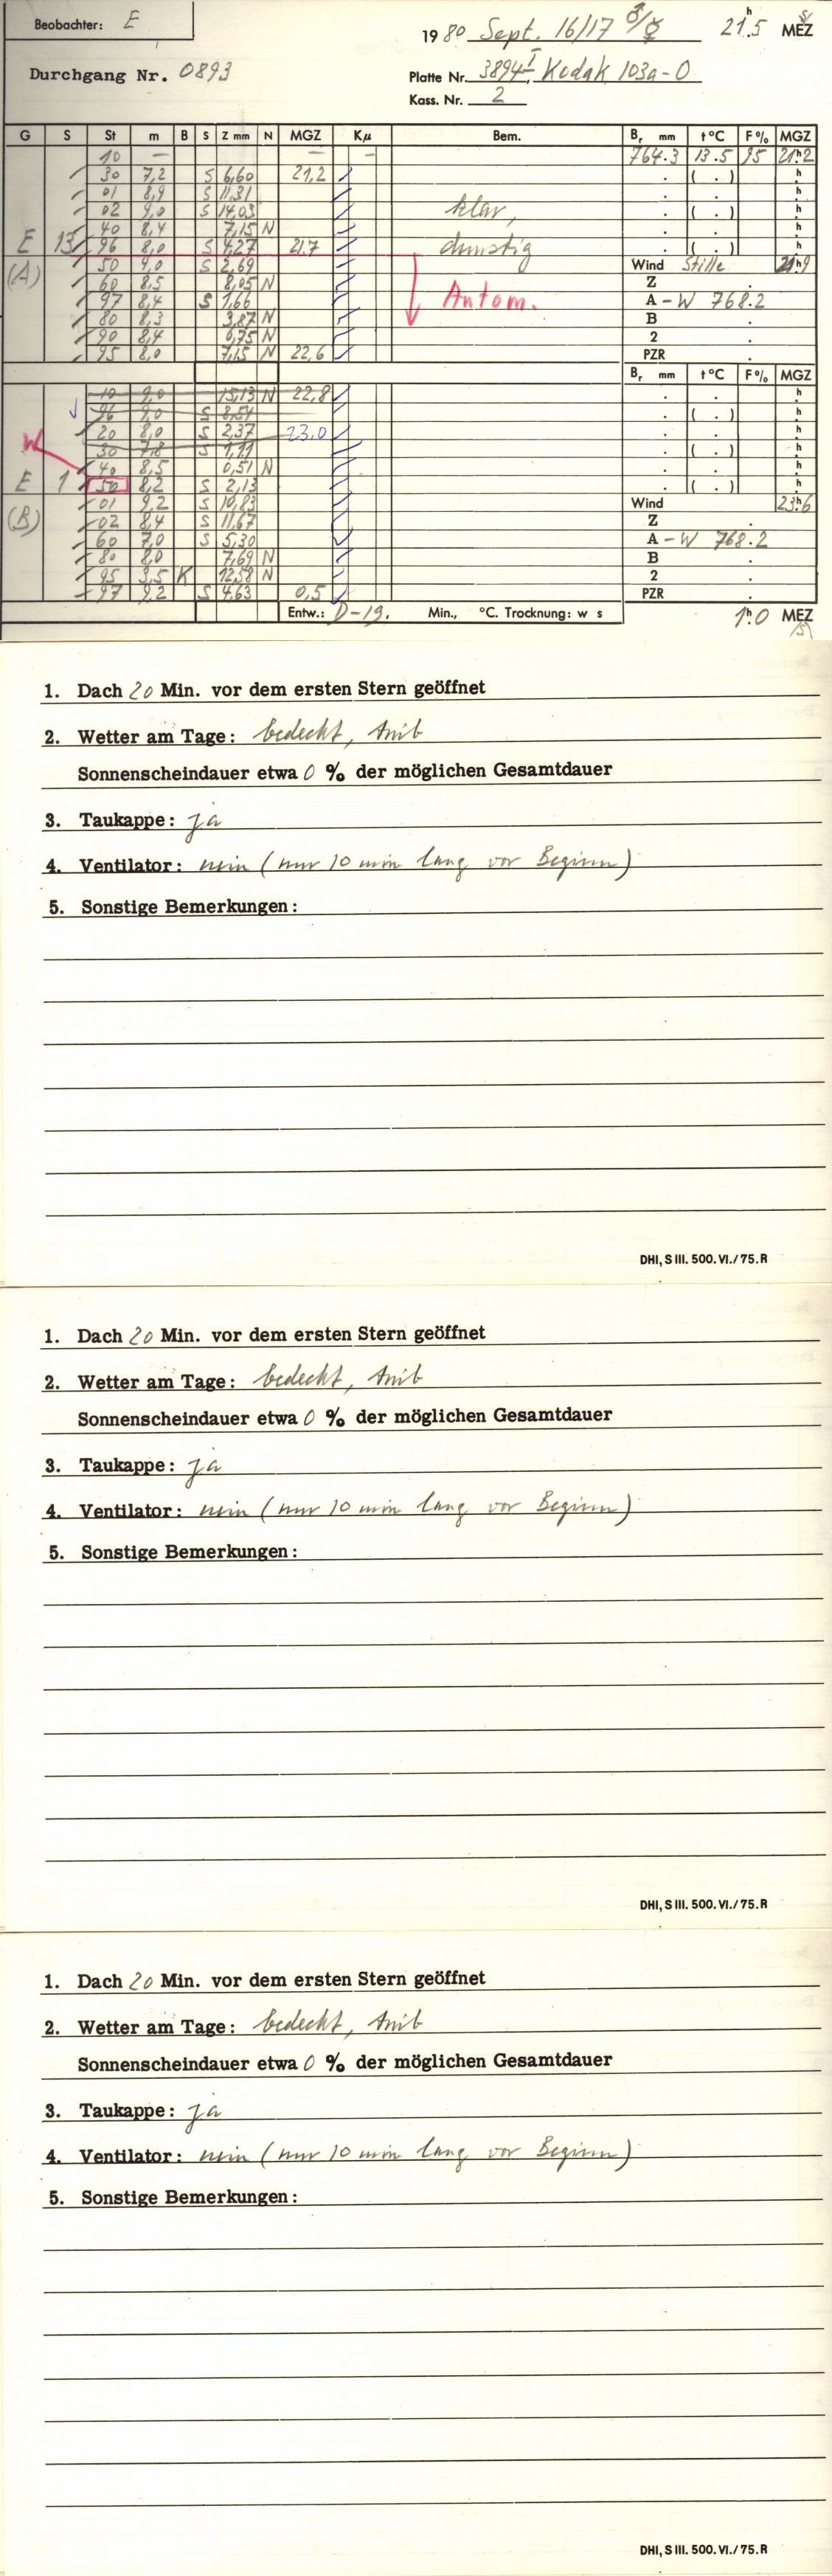 Beobachter: E
1980 Sept. 16/17 ♂/☿ 21h.5 MEZ
Durchgang Nr. 0893
Platte Nr. 3894 I, Kodak 103a-O
Kass. Nr. 2
G S St m B S Z mm N MGZ Kµ Bem. Br mm t°C F% MGZ
10 — — — 764.3 13.5 95 21h2
30 7,2 S 6,60 21,2 . ( . ) h
01 8,9 S 11,31 . . h
02 9,0 S 14,03 klar, . ( . ) h
40 8,4 7,15 N . . h
E 13 96 8,0 S 4,27 21.7 dunstig . ( . ) h
(A) 50 9,0 S 2,69 Wind Stille 21h9
60 8,5 8,05 N Z .
97 8,4 S 1,66 Autom. A – W 768.2
80 8,3 3,87 N B .
90 8,4 0,75 N 2 .
95 8,0 7,15 N 22,6 PZR .
Br mm t°C F% MGZ
10 9,0 15,13 N 22,8 . . h
96 9,0 S 8,54 . ( . ) h
20 8,0 S 2,37 23.0 . . h
30 7,8 S 1,11 . ( . ) h
W 40 8,5 0,51 N . . h
E 1 50 8,2 S 2,13 . ( . ) h
(B) 01 9,2 S 10,83 Wind 23h6
02 8,4 S 11,67 Z .
60 7,0 S 5,30 A – W 768.2
80 8,0 7,69 N B .
95 3,5 K 12,58 N 2 .
97 9,2 S 4,63 0,5 PZR .
Entw.: D-19. Min., °C. Trocknung: w s 1h.0 MEZ
1. Dach 20 Min. vor dem ersten Stern geöffnet
2. Wetter am Tage: bedeckt, trüb
Sonnenscheindauer etwa 0 % der möglichen Gesamtdauer
3. Taukappe: ja
4. Ventilator: nein (nur 10 min lang vor Beginn)
5. Sonstige Bemerkungen:
DHI, S III. 500. VI./75. R
1. Dach 20 Min. vor dem ersten Stern geöffnet
2. Wetter am Tage: bedeckt, trüb
Sonnenscheindauer etwa 0 % der möglichen Gesamtdauer
3. Taukappe: ja
4. Ventilator: nein (nur 10 min lang vor Beginn)
5. Sonstige Bemerkungen:
DHI, S III. 500. VI./75. R
1. Dach 20 Min. vor dem ersten Stern geöffnet
2. Wetter am Tage: bedeckt, trüb
Sonnenscheindauer etwa 0 % der möglichen Gesamtdauer
3. Taukappe: ja
4. Ventilator: nein (nur 10 min lang vor Beginn)
5. Sonstige Bemerkungen:
DHI, S III. 500. VI./75. R